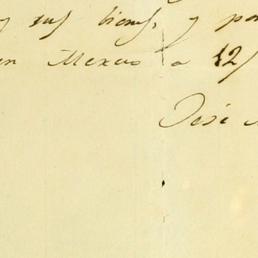 y sus bienes, y por
en Mexico a 12
José